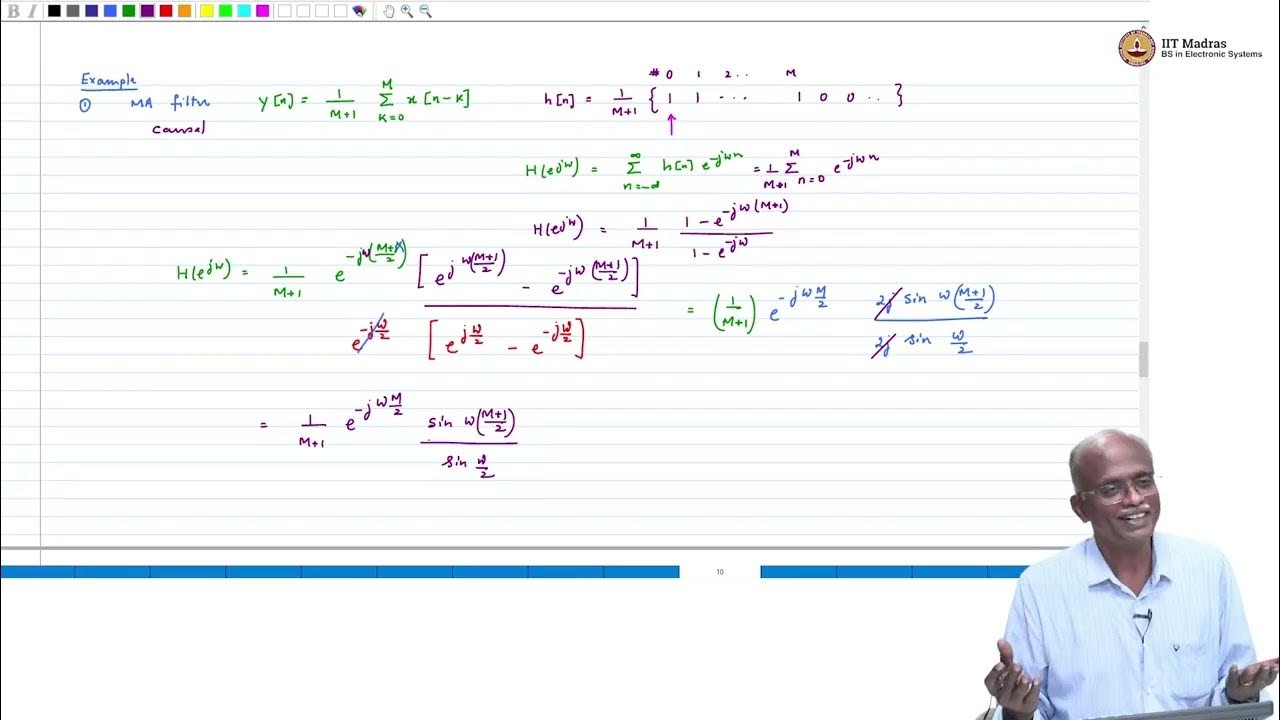 B I
IIT Madras
BS in Electronic Systems
Example
① MA filter y[n] = 1/(M+1) Σ_{k=0}^{M} x[n-k] h[n] = 1/(M+1) { 1 1 ... 1 0 0 .. }
0 1 2.. M
causal
H(e^{jω}) = Σ_{n=-∞}^{∞} h[n] e^{-jωn} = 1/(M+1) Σ_{n=0}^{M} e^{-jωn}
H(e^{jω}) = 1/(M+1) (1 - e^{-jω(M+1)})/(1 - e^{-jω})
H(e^{jω}) = 1/(M+1) e^{-jω((M+1)/2)} [e^{jω((M+1)/2)} - e^{-jω((M+1)/2)}] / e^{-jω/2} [e^{jω/2} - e^{-jω/2}]
= (1/(M+1)) e^{-jωM/2} (2j sin ω((M+1)/2))/(2j sin ω/2)
= 1/(M+1) e^{-jωM/2} (sin ω((M+1)/2))/(sin ω/2)
10